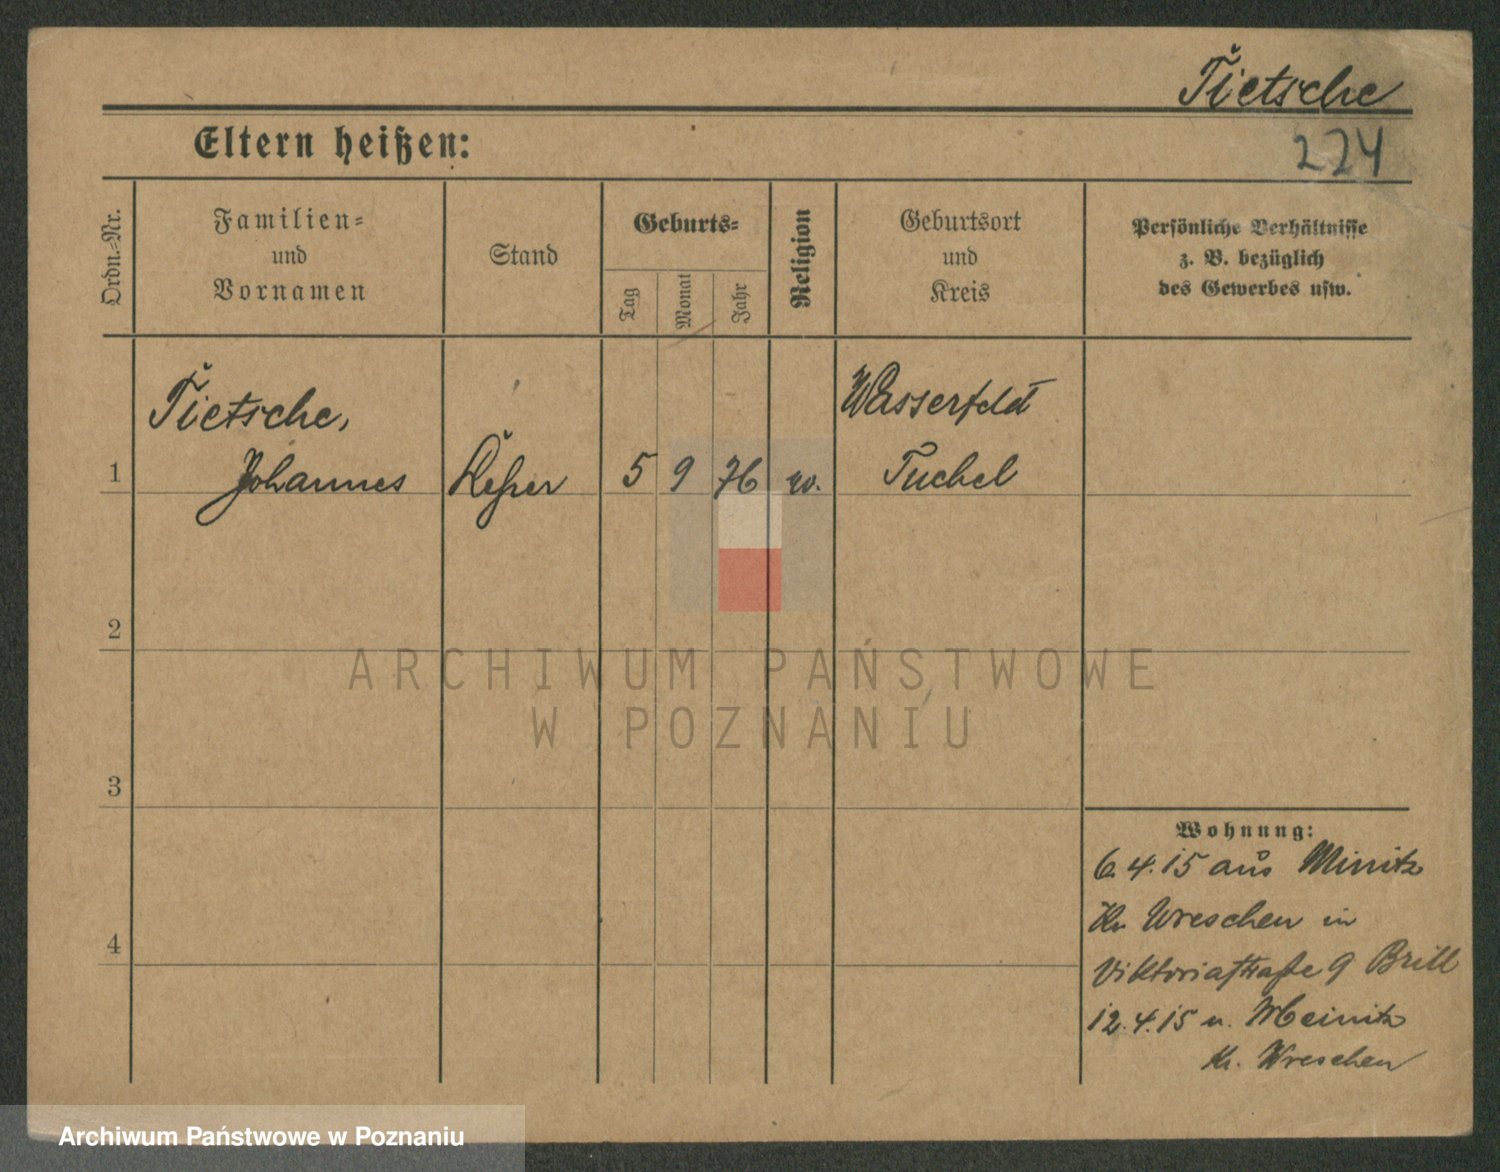 Tietsche
Eltern heißen:
224
Ordn.-Nr.
Familien-
und
Vornamen
Stand
Geburts-
Tag
Monat
Jahr
Religion
Geburtsort
und
Kreis
Persönliche Verhältnisse
z. B. bezüglich
des Gewerbes usw.
Tietsche,
Wasserfeld
1 Johannes 5 9 76 Tuchel
2
3
4
ARCHIWUM PAŃSTWOWE
W POZNANIU
Wohnung:
6.4.15 aus
Kr. Wreschen in
Viktoriastraße 9 Brill
12.4.15 n. Meinitz
Kr. Wreschen
Archiwum Państwowe w Poznaniu